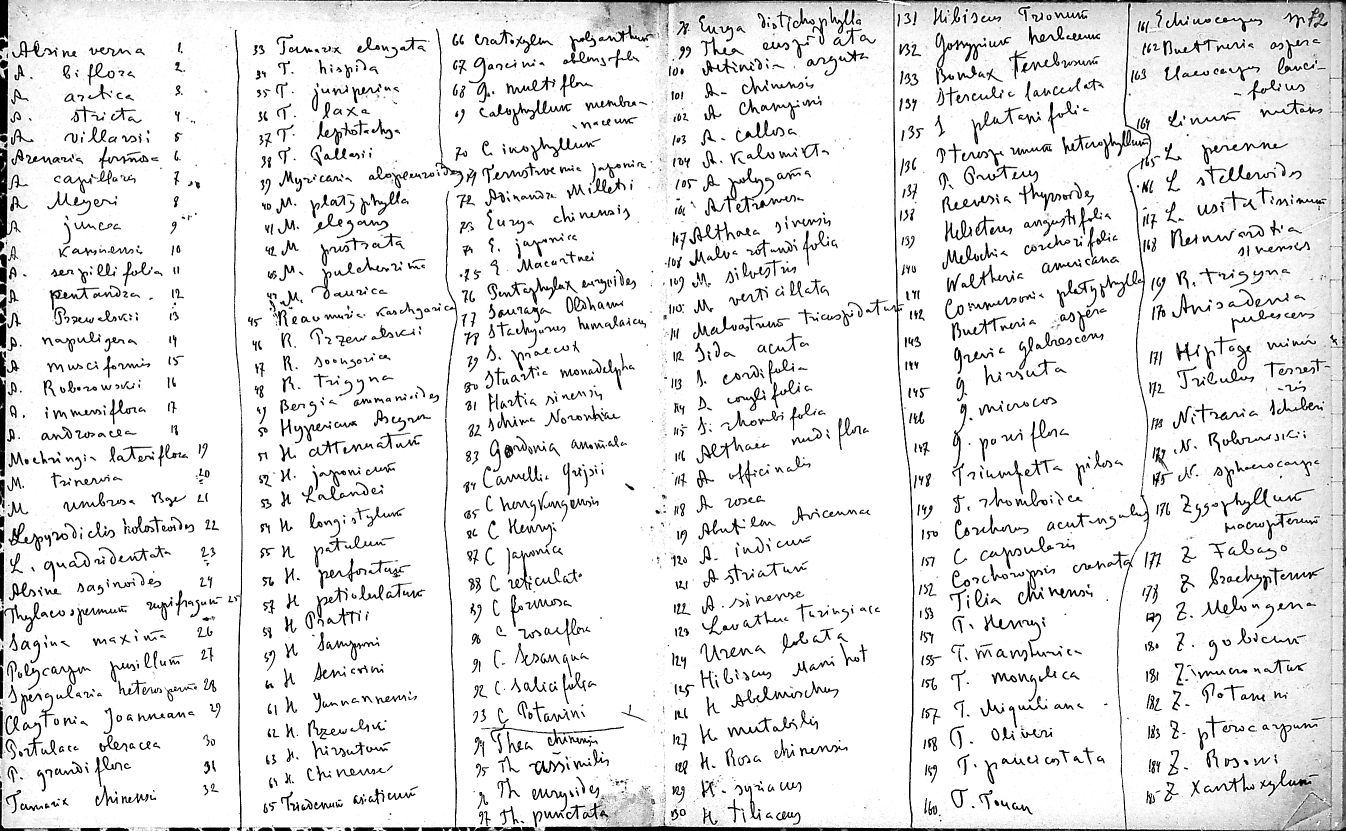 Alsine verna 1.
A. biflora 2
A arctica 3
A. stricta 4
A villarsii 5
Arenaria formosa 6
A capillaris 7
A Meyeri 8
A juncea 9
A kansuensis 10
A. serpillifolia 11
A pentandra. 12
A Przewalskii 13
A. napuligera 14
A musciformis 15
A. Roborowskii 16
A. immersiflora 17
A. androsacea 18
Moehringia lateriflora 19
M. trinervia 20
M umbrosa Bge 21
Lepyrodiclis holosteoides 22
L. quadridentata 23
Alsine saginoides 24
Thylacospermum rupifragum 25
Sagina maxima 26
Polycarpn pusillum 27
Spergularia heterosperma 28
Claytonia Joanneana 29
Portulaca oleracea 30
P. grandiflora 31
Tamarix chinensi 32
33 Tamarix elongata
34 T. hispida
35 T. juniperina
36 T. laxa
37 T. leptotachya
38 T. Pallasii
39 Myricaria alopecuroides
40 M. platyphylla
41 M. elegans
42 M prostrata
43 M. pulcherrima
M. daurica
45 Reaumuria Kaschgarica
46 R. Przewalskii
47 R. soongorica
48 R. trigyna
49 Bergia ammanioides
50 Hypericum Ascyron
51 H attenuatum
52 H. japonicum
53 H Lalandei
54 H longistylum
55 H patulum
56 H. perforatum
57 H petiolulatum
58 H Prattii
59 H Sampsoni
60 H Seniavini
61 H Yunnannensis
62 H. Przewalski
63 H. hirsutum
64 H. Chinense
65 Triadenum asiaticum
66 Cratoxylon polyanthum
67 Garcinia oblongifolia
68 G. multiflora
69 Calophyllum membra-
naceum
70 C. inophyllum
71 Ternstroemia japonica
72 Adinandra Milletii
73 Eurya chinensis
74 E. japonica
75 E. Macartnei
76 Pentaphylax euryoides
77 Saurauja Oldhami
78 Stachyurus himalaicus
79 S. praecox
80 Stuartia monadelpha
81 Hartia sinensis
82 Schima Noronhae
83 Gordonia anomala
84 Camellia Grijsii
85 C hongkongensis
86 C Henryi
87 C japonica
88 C reticulata
89 C formosa
90 C. rosaeflora
91 C. Sesanqua
92 C. salicifolia
93 C Potanini
94 Thea chinensis
95 Th assimilis
96 Th euryoides
97 Th. punctata
98 Eurya distichophylla
99 Thea cuspidata
100 Actinidia arguta
101 A. chinensis
102 A Championi
103 A. callosa
104 A. Kalomikta
105 A polygama
106 A tetramera
107 Althaea sinensis
108 Malva rotundifolia
109 M. silvestris
110 M verticillata
111 Malvastrum tricuspidatum
112 Sida acuta
113 S. cordifolia
114 S
115 S. rhombifolia
116 Althaea nudiflora
117 A officinalis
118 A rosea
119 Abutilon Avicennae
120 A. indicum
121 A striatum
122 A. sinense
123 Lavathera turingiaca
124 Urena lobata
125 Hibiscus Manihot
126 H Abelmoschus
127 H mutabilis
128 H. Rosa chinensis
129 H. syriacus
130 H tiliaceus
131 Hibiscus Trionum
132 Gossypium herbaceum
133 Bombax tenebrosum
134 Sterculia lanceolata
135 S platanifolia
136 Pterospermum heterophyllum
137 P. Proteus
Reevesia thyrsoides
138 Helicteres angustifolia
139 Melochia corchorifolia
140 Waltheria americana
141 Commersonia platyphylla
142 Buettneria aspera
143 Grevia glabrescens
144 G. hirsuta
145 G. microcos
146
147 G. parviflora
148 Triumfetta pilosa
149 T. rhomboidea
150 Corchorus acutangulus
151 C. capsularis
152 Corchoropsis crenata
153 Tilia chinensis
154 T. Henryi
155 T. manshurica
156 T. mongolica
157 T. Miqueliana
158 T. Oliveri
159 T. paucicostata
160 T. Tuan
12
161 Echinocarpus sp
162 Buettneria aspera
163 Elaeocarpus lanci-
folius
164 Linum nutans
165 L perenne
166 L stelleroides
167 L. usitatissimum
168 Reinwardtia
sinensis
169 R. trigyna
170 Anisadenia
pubescens
171 Hiptage
172 Tribulus terrest-
ris
173 Nitraria Schoberi
174 N. Roborowskii
175 N. sphaerocarpa
176 Zygophyllum
macropterum
177 Z Fabago
178 Z brachypterum
179 Z. Melongena
180 Z. gobicum
181 Z. mucronatum
182 Z. Potanini
183 Z. pterocarpum
184 Z. Rosowi
185 Z Xanthoxylum